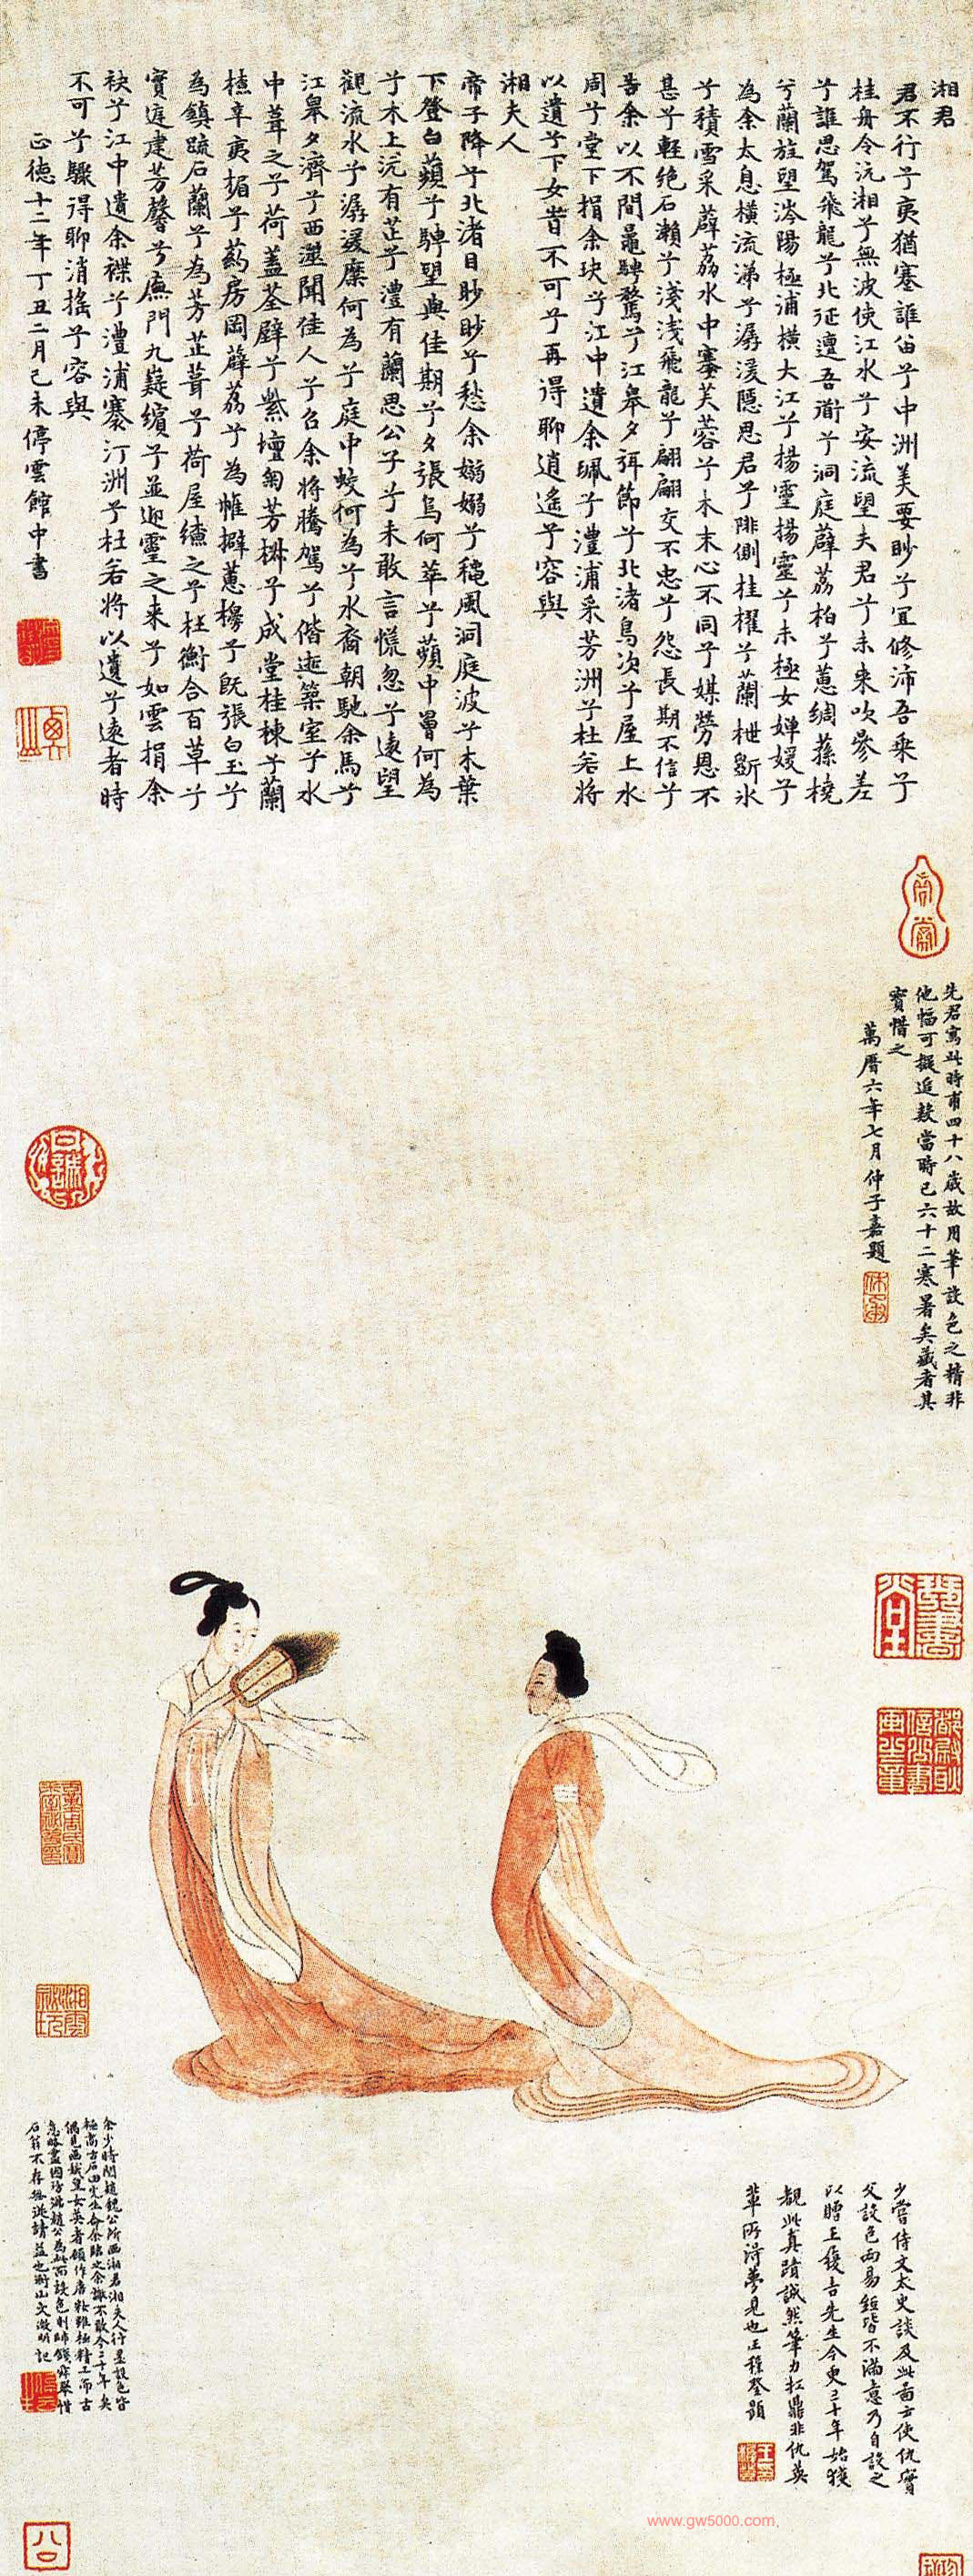 湘君
君不行兮夷猶蹇誰留兮中洲美要眇兮宜修沛吾乘兮
桂舟令沅湘兮無波使江水兮安流望夫君兮未來吹參差
兮誰思駕飛龍兮北征邅吾道兮洞庭薜荔柏兮蕙綢蓀橈
兮蘭旌望涔陽極浦橫大江兮揚靈揚靈兮未極女嬋媛兮
為余太息橫流涕兮潺湲隱思君兮陫側桂櫂兮蘭枻斲冰
兮積雪采薜荔水中搴芙蓉兮木末心不同兮媒勞恩不
甚兮輕絕石瀨兮淺淺飛龍兮翩翩交不忠兮怨長期不信兮
告余以不閒鼂騁騖兮江皋夕弭節兮北渚鳥次兮屋上水
周兮堂下捐余玦兮江中遺余珮兮澧浦采芳洲兮杜若將
以遺兮下女旹不可兮再得聊逍遙兮容與
湘夫人
帝子降兮北渚目眇眇兮愁余嫋嫋兮穐風洞庭波兮木葉
下登白薠兮騁望與佳期兮夕張鳥何萃兮蘋中罾何為
兮木上沅有芷兮澧有蘭思公子兮未敢言慌忽兮遠望
觀流水兮潺湲麋何為兮庭中蛟何為兮水裔朝馳余馬兮
江皋夕濟兮西澨聞佳人兮召余將騰駕兮偕逝築室兮水
中葺之兮荷蓋荃壁兮紫壇匊芳椒兮成堂桂棟兮蘭
橑辛夷楣兮葯房罔薜荔兮為帷擗蕙櫋兮既張白玉兮
為鎮疏石蘭兮為芳芷葺兮荷屋繚之兮杜衡合百草兮
實庭建芳馨兮廡門九嶷繽兮並迎靈之來兮如雲捐余
袂兮江中遺余褋兮澧浦搴汀洲兮杜若將以遺兮遠者時
不可兮驟得聊消搖兮容與
正德十二年丁丑二月己未停雲館中書
先君寫此時甫四十八歲故用筆設色之精非
他幅可擬追數當時已六十二寒暑矣藏者其
寶惜之
萬曆六年七月仲子嘉題
少嘗侍文太史談及此圖云使仇實
父設色兩易紙皆不滿意乃自設之
以贈王履吉先生今更三十年始獲
覩此真蹟誠然筆力扛鼎非仇英
輩所得夢見也王穉登題
余少時閱趙魏公所畫湘君湘夫人行墨設色皆
極高古石田先生命余臨之余謝不敢今二十年矣
偶見畫娥皇女英者顧作唐妝雖極精工而古
意略盡因彷彿趙公為此而設色則師錢舜舉惜
石翁不存無從請益也衡山文徵明記
www.gw5000.com